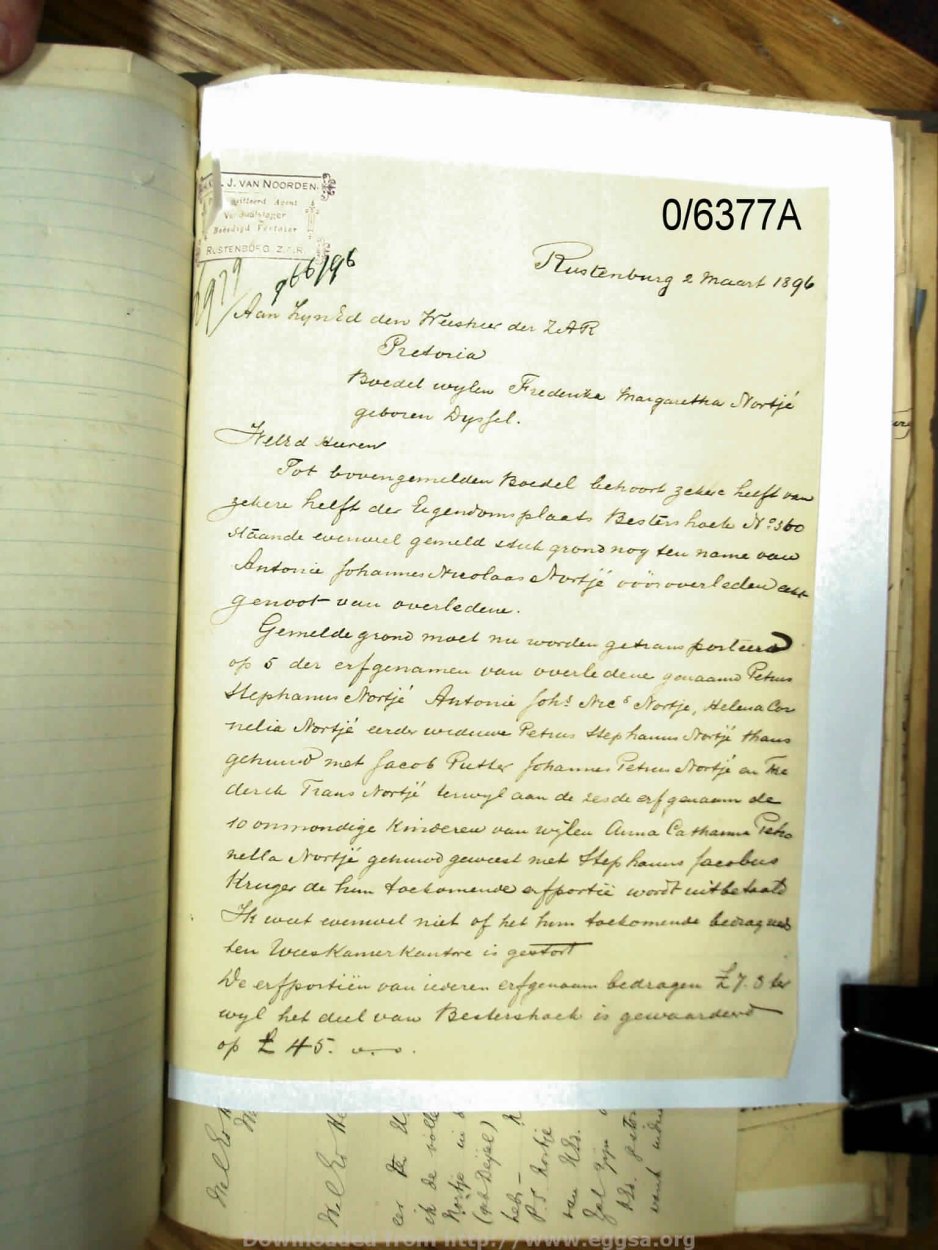 J. VAN NOORDEN.
Agent
Venduafslager
Beëedigd Vertaler
RUSTENBURG, Z.A.R.
0/6377A
966/96
Rustenburg 2 Maart 1896
Aan ZynEd den Weesheer der Z.A.R
Pretoria
Boedel wylen Frederika Margaretha Nortjé
geboren Dyssel.
WelEd Heeren
Tot bovengemelden Boedel behoort zekere helft van
zekere helft der Eigendomsplaats Bestershoek No 360
staande evenwel gemeld stuk grond nog ten name van
Antonie Johannes Nicolaas Nortjé vooroverleden echt
genoot van overledene.
Gemelde grond moet nu worden getransporteerd
op 5 der erfgenamen van overledene genaamd Petrus
Stephanus Nortjé Antonie Johs Nics Nortje, Helena Cor
nelia Nortjé eerder weduwe Petrus Stephanus Nortjé thans
gehuwd met Jacob Putter Johannes Petrus Nortjé en Fre
derik Frans Nortjé terwyl aan de zesde erfgenaam de
10 onmondige Kinderen van wylen Anna Catharina Petro
nella Nortjé gehuwd geweest met Stephanus Jacobus
Kruger de hun toekomende erfportie wordt uitbetaald
Ik weet evenwel niet of het hun toekomende bedrag reeds
ten Weeskamer Kantore is gestort
De erfportiën van iederen erfgenaam bedragen £7.3 ter
wyl het deel van Bestershoek is gewaardeerd
op £ 45. v.o.
WelEd
WelEd
ik de
Nortje in
(geb Dyssel)
hebr
P.S. Nortje
van
Zal Zyn
Downloaded from http://www.eggsa.org